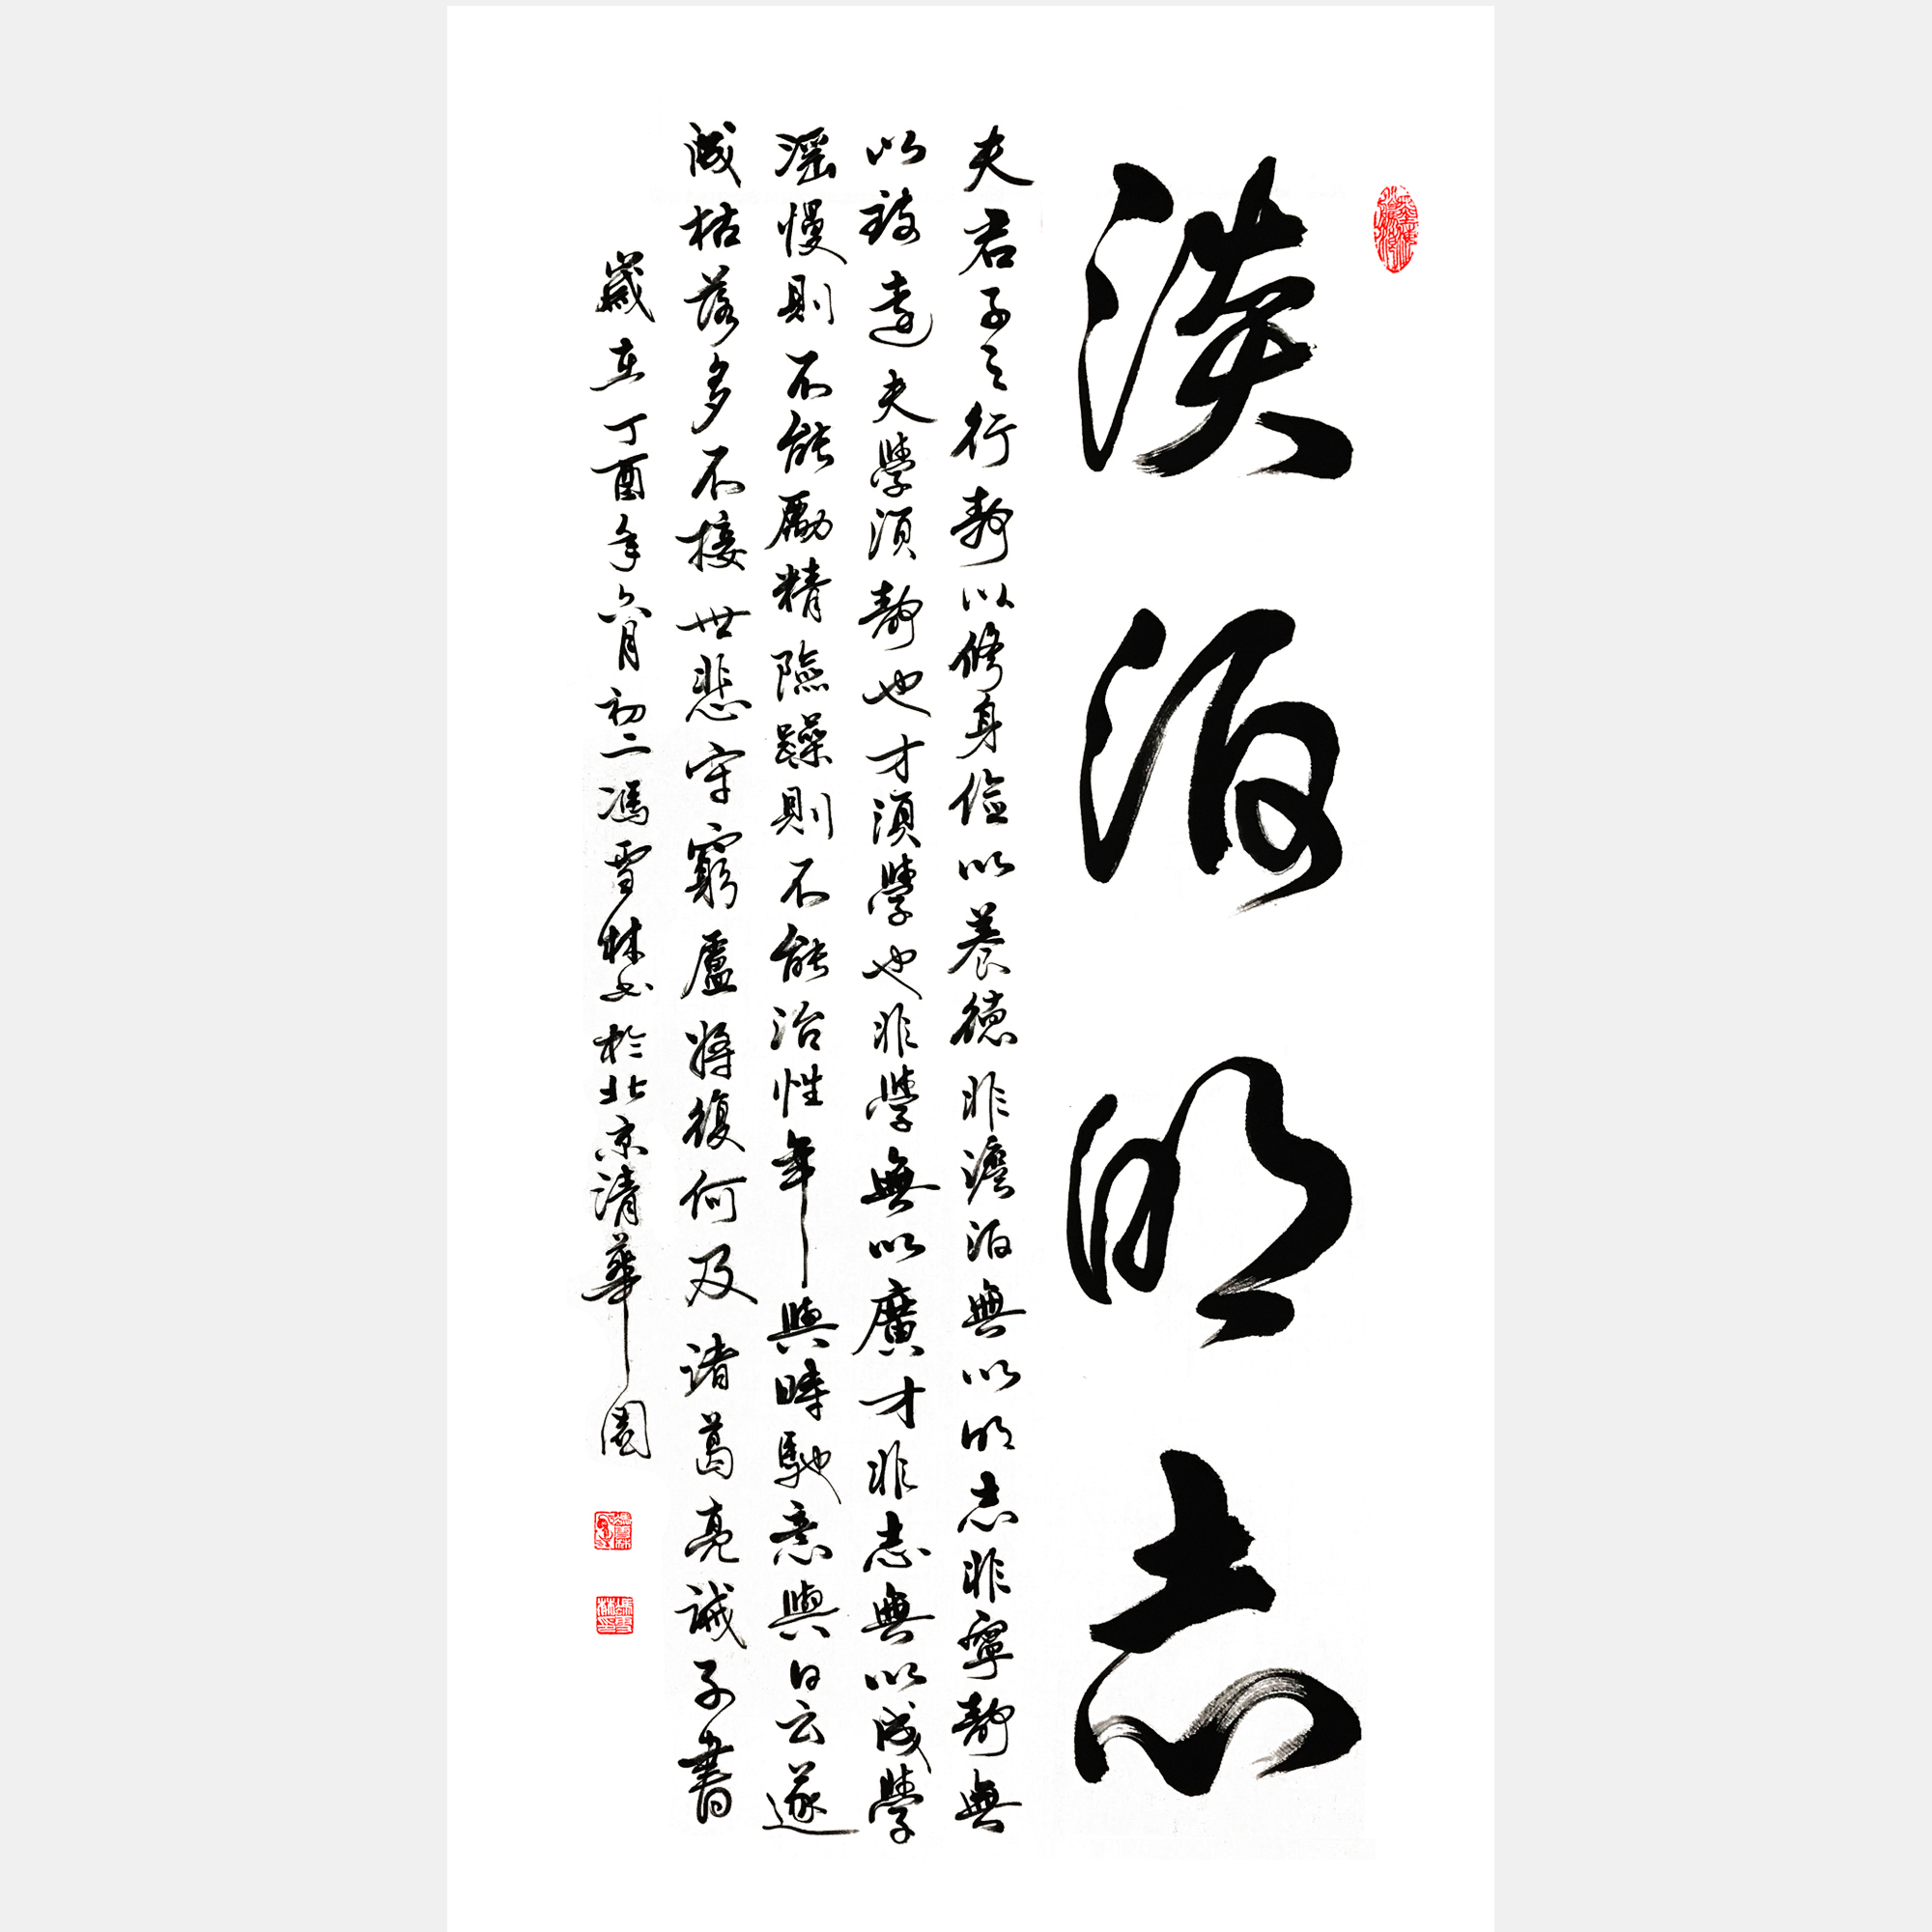 淡泊明志
夫君子之行靜以修身儉以養德非澹泊無以明志非寧靜無
以致遠夫學須靜也才須學也非學無以廣才非志無以成學
滛慢則不能勵精險躁則不能治性年與時馳意與日去遂
成枯落多不接世悲守窮廬將復何及諸葛亮誡子書
歲在丁酉年六月初二馮雪林書於北京清華園